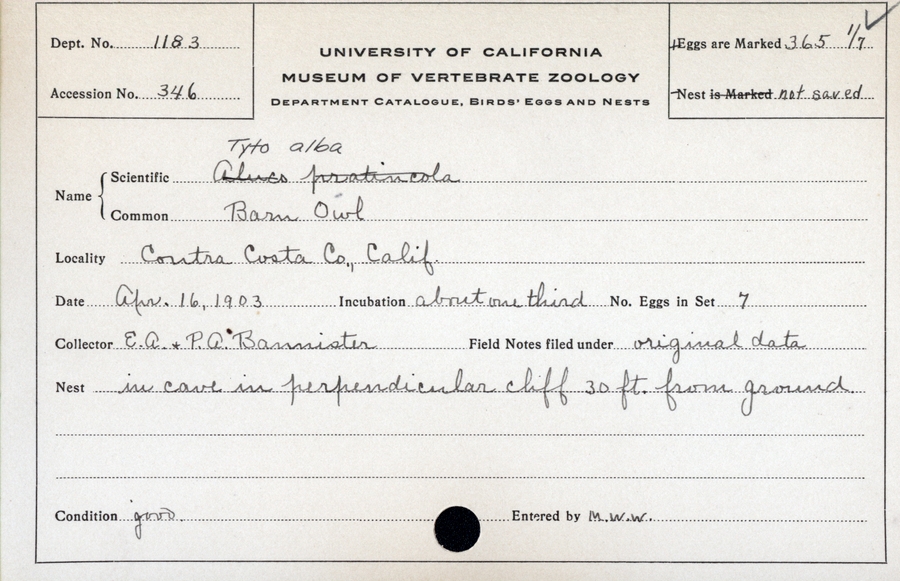 Dept. No. 1183
Accession No. 346
UNIVERSITY OF CALIFORNIA
MUSEUM OF VERTEBRATE ZOOLOGY
DEPARTMENT CATALOGUE, BIRDS' EGGS AND NESTS
Eggs are Marked 365 1/7
Nest is Marked not saved
Tyto alba
Name
Scientific Aluco pratincola
Common Barn Owl
Locality Contra Costa Co., Calif.
Date Apr. 16, 1903 Incubation about one third No. Eggs in Set 7
Collector E.A. + P.A. Bannister Field Notes filed under original data
Nest in cave in perpendicular cliff 30 ft. from ground.
Condition good. Entered by M.W.W.